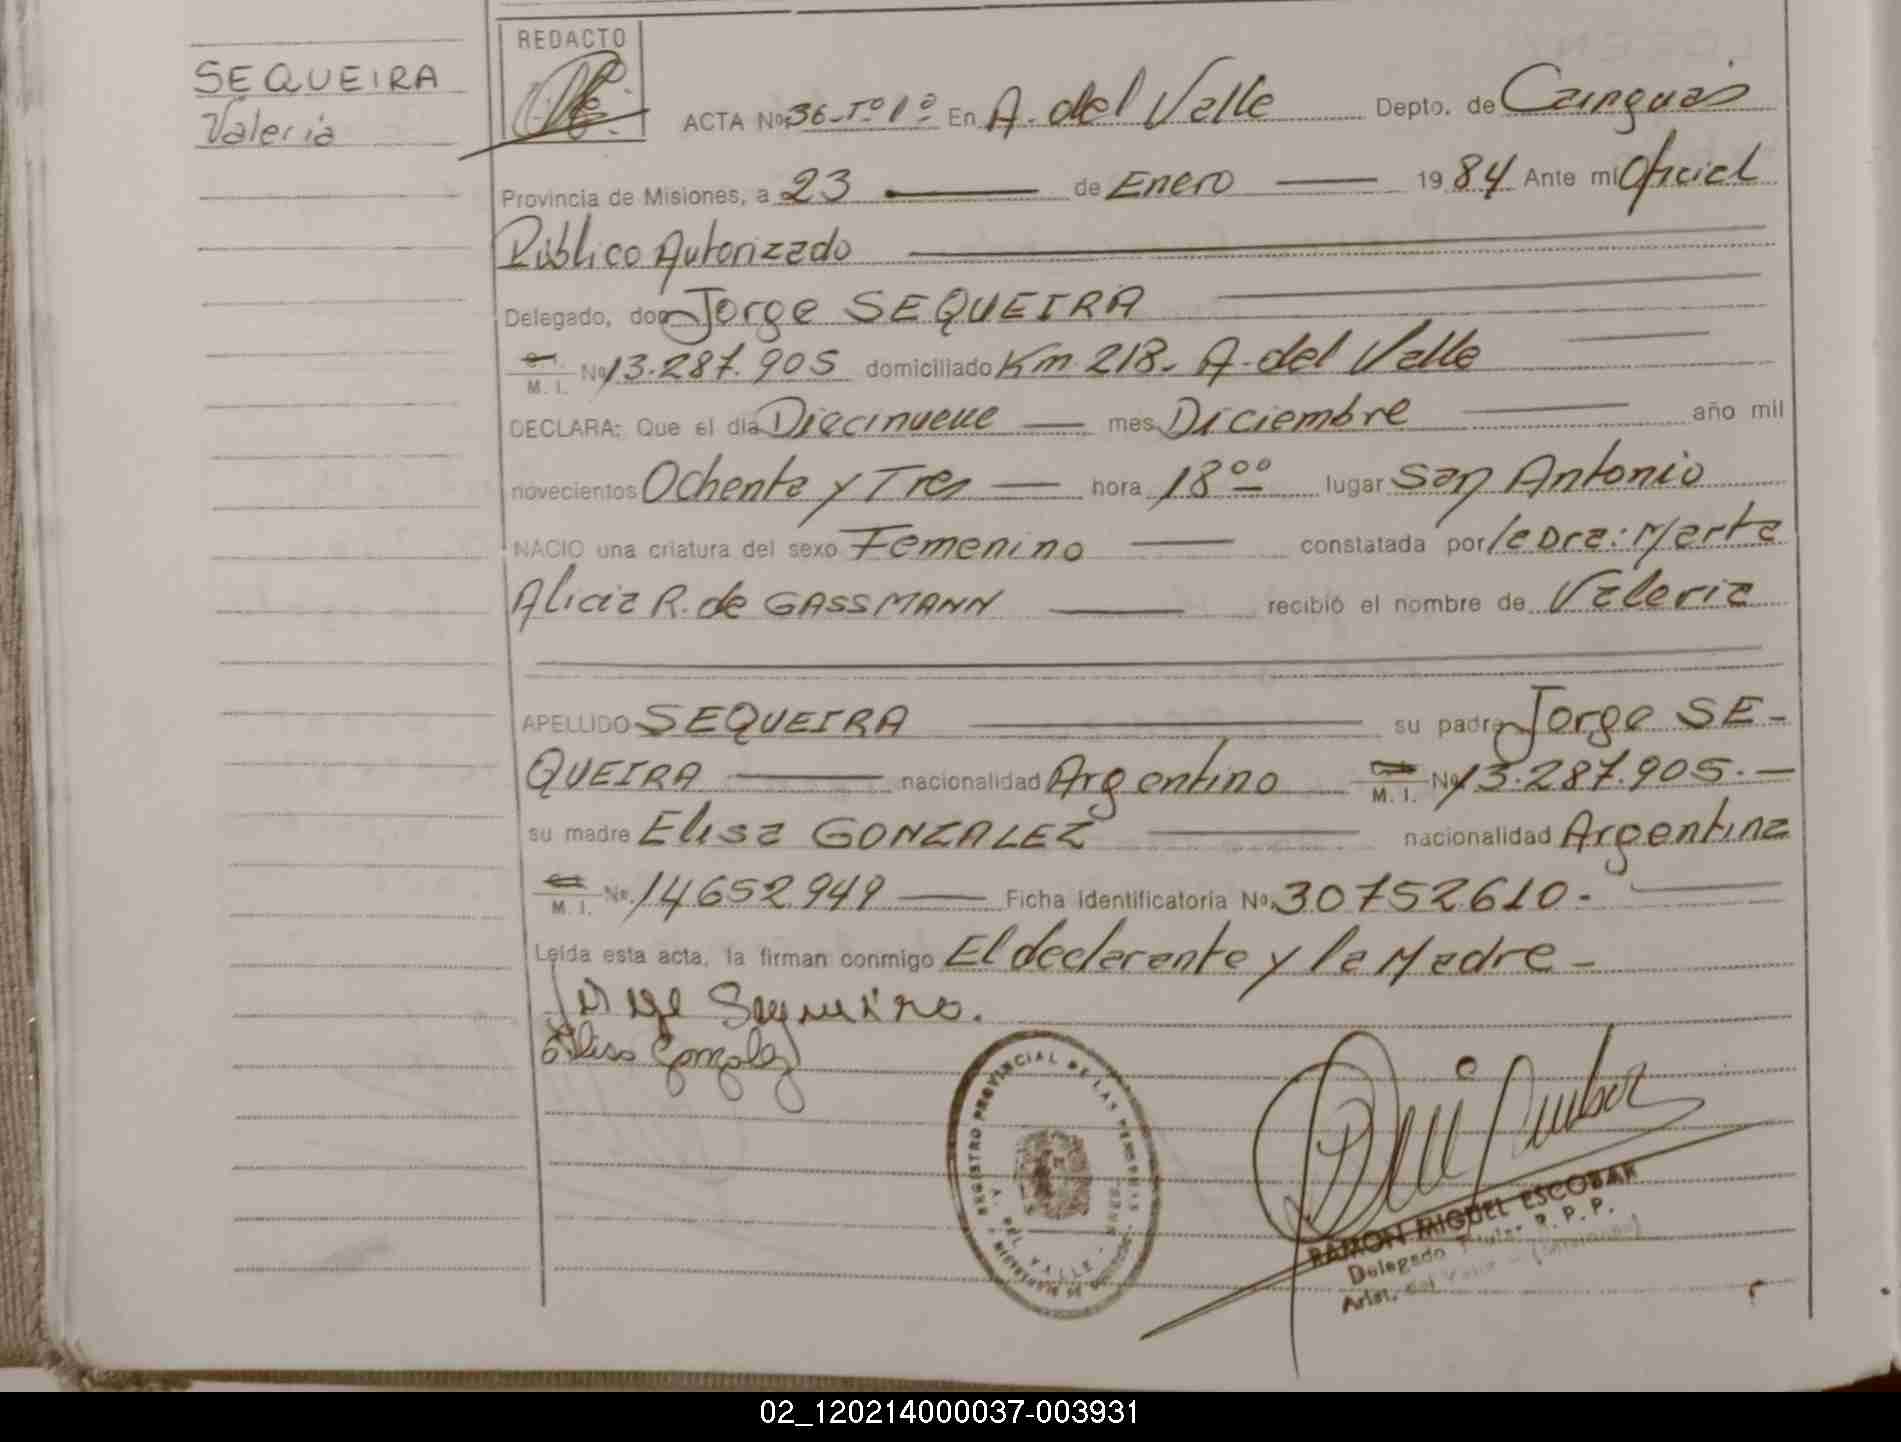 SEQUEIRA
Valeria
REDACTO
ACTA Nº 36-Tº 1º En A. del Valle Depto. de Cainguás
Provincia de Misiones, a 23 de Enero 1984 Ante mi Oficial
Público Autorizado
Delegado, don Jorge SEQUEIRA
M. I. Nº 13.287.905 domiciliado Km 218- A. del Valle
DECLARA: Que el día Diecinueve mes Diciembre año mil
novecientos Ochenta y Tres hora 18ºº lugar San Antonio
NACIO una criatura del sexo Femenino constatada por la Dra: Marta
Alicia R. de GASSMANN recibió el nombre de Valeria
APELLIDO SEQUEIRA su padre Jorge SE-
QUEIRA nacionalidad Argentino M. I. Nº 13.287.905.-
su madre Elisa GONZALEZ nacionalidad Argentina
M. I. Nº 14652949 Ficha Identificatoria Nº 30752610.-
Leída esta acta, la firman conmigo El declarante y la Madre-
Jorge Sequeira.
Elisa Gonzalez
REGISTRO PROVINCIAL DE LAS PERSONAS
A. DEL VALLE
RAMON MIGUEL ESCOBAR
Delegado Titular R. P. P.
Arist. del Valle - (Misiones)
02_120214000037-003931